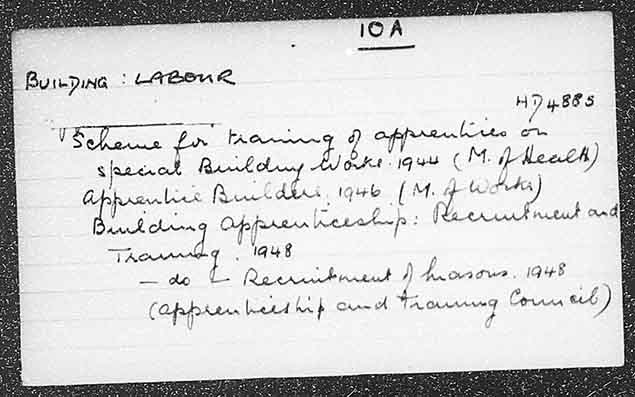 10A
BUILDING : LABOUR
HD4885
Scheme for training of apprentices on
special Building Works. 1944 (M. of Health)
Apprentice Builders. 1946 (M. of Works)
Building Apprenticeship: Recruitment and
Training. 1948
- do - Recruitment of masons. 1948
(Apprenticeship and Training Council)